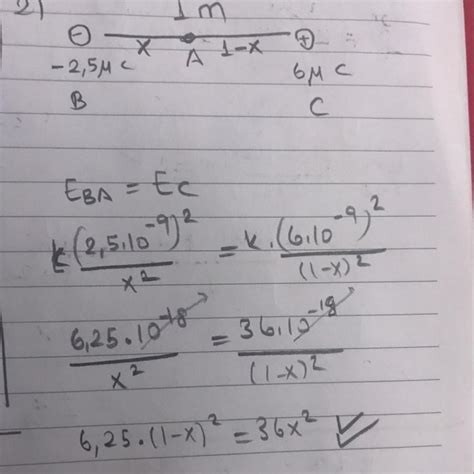 2)
1 m
⊖ x A 1-x ⊕
-2,5μc 6μc
B C
E_BA = E_C
k(2,5.10^-9)^2/x^2 = k.(6.10^-9)^2/(1-x)^2
6,25.10^-18/x^2 = 36.10^-18/(1-x)^2
6,25.(1-x)^2 = 36x^2